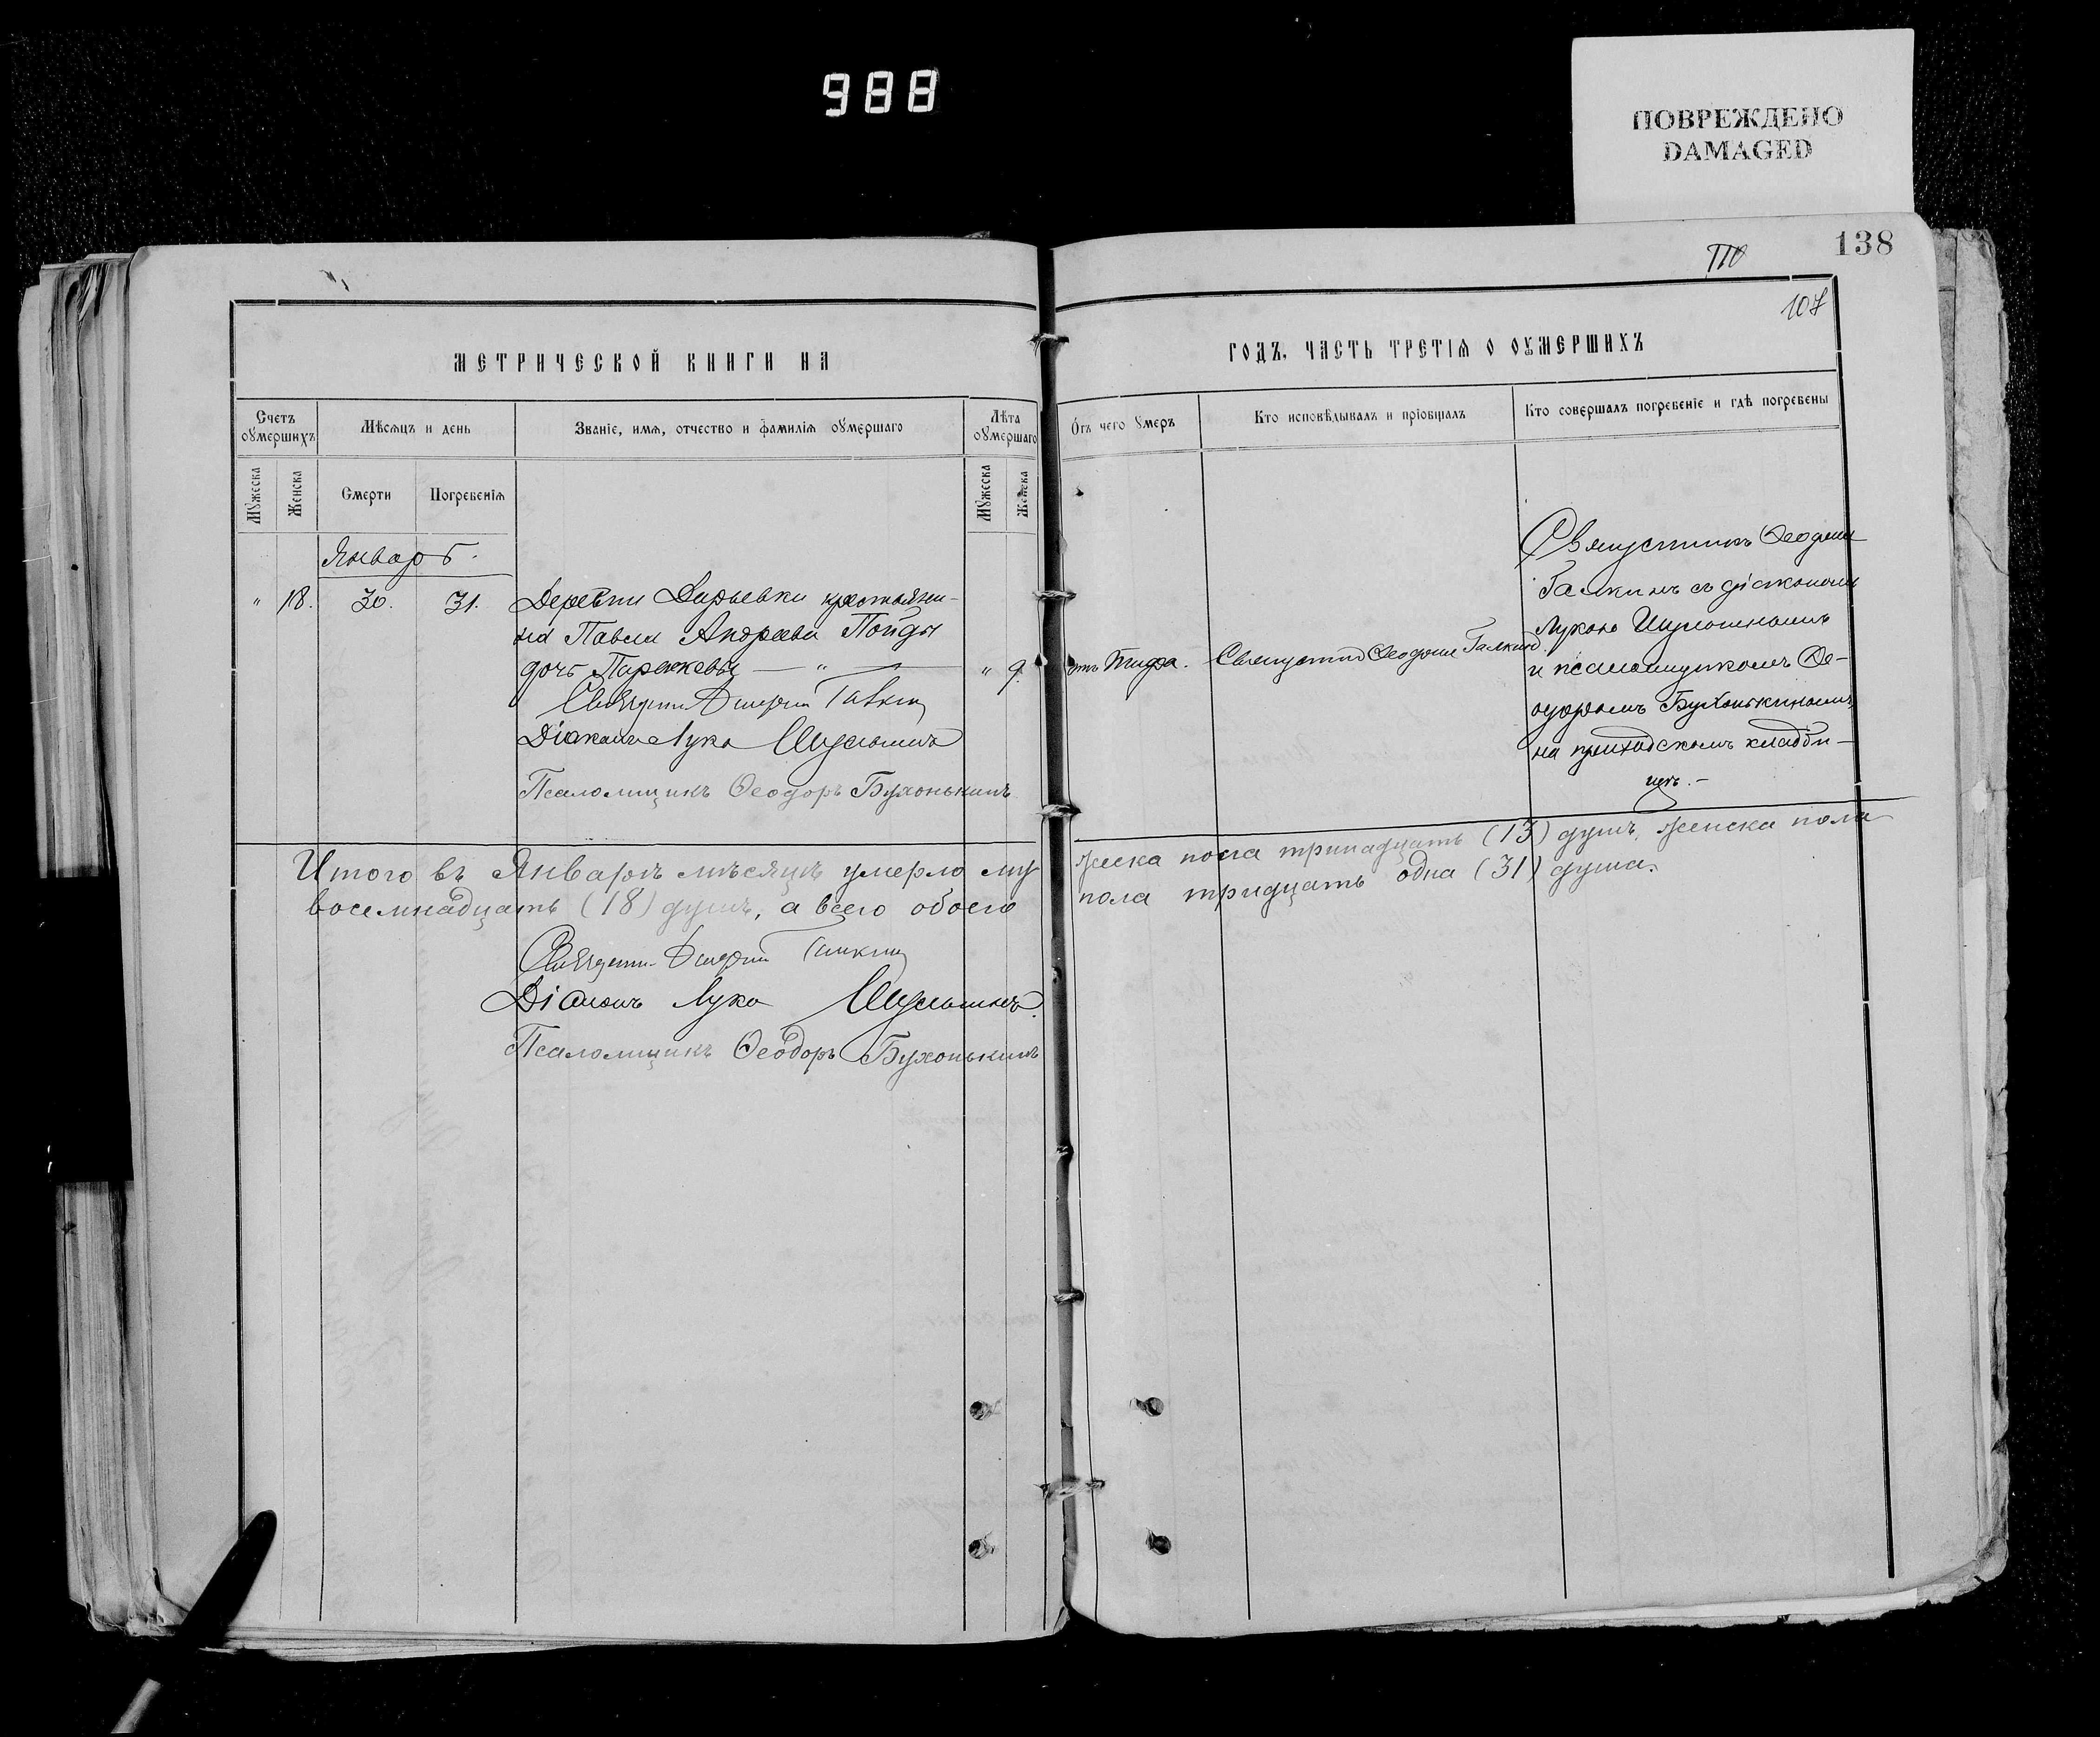 988
ПОВРЕЖДЕНО
DAMAGED
138
110
107
МЕТРИЧЕСКОЙ КНИГИ НА
ГОДЪ, ЧАСТЬ ТРЕТІѦ О ОУМЕРШИХЪ
Счетъ оумершихъ
Мѣсяцъ и день
Званіе, имѧ, отчество и фамиліѧ оумершаго
Лѣта оумершаго
Отъ чего умеръ
Кто исповѣдывалъ и пріобщалъ
Кто совершалъ погребеніе и гдѣ погребены
Мужеска
Женска
Смерти
Погребеніѧ
Мужеска
Женска
Январь.
" 18. 30. 31. Деревни Дарьевки крестьяни-
на Павла Андреева Пойды
дочь Параскева — " — " 9. отъ тифа. Галкинъ
Діаконъ Лука
Псаломщикъ Ѳеодоръ Бухонькинъ
Священникъ
Галкинъ съ діакономъ
Лукою
и псаломщикомъ Ѳе-
одоромъ Бухонькинымъ,
на приходскомъ кладби-
щѣ.-
Итого въ Январѣ мѣсяцѣ умерло му жеска пола тринадцать (13) душъ, женска пола
восемнадцать (18) душъ, а всего обоего пола тридцать одна (31) душа.
Галкинъ
Діаконъ Лука
Псаломщикъ Ѳеодоръ Бухонькинъ